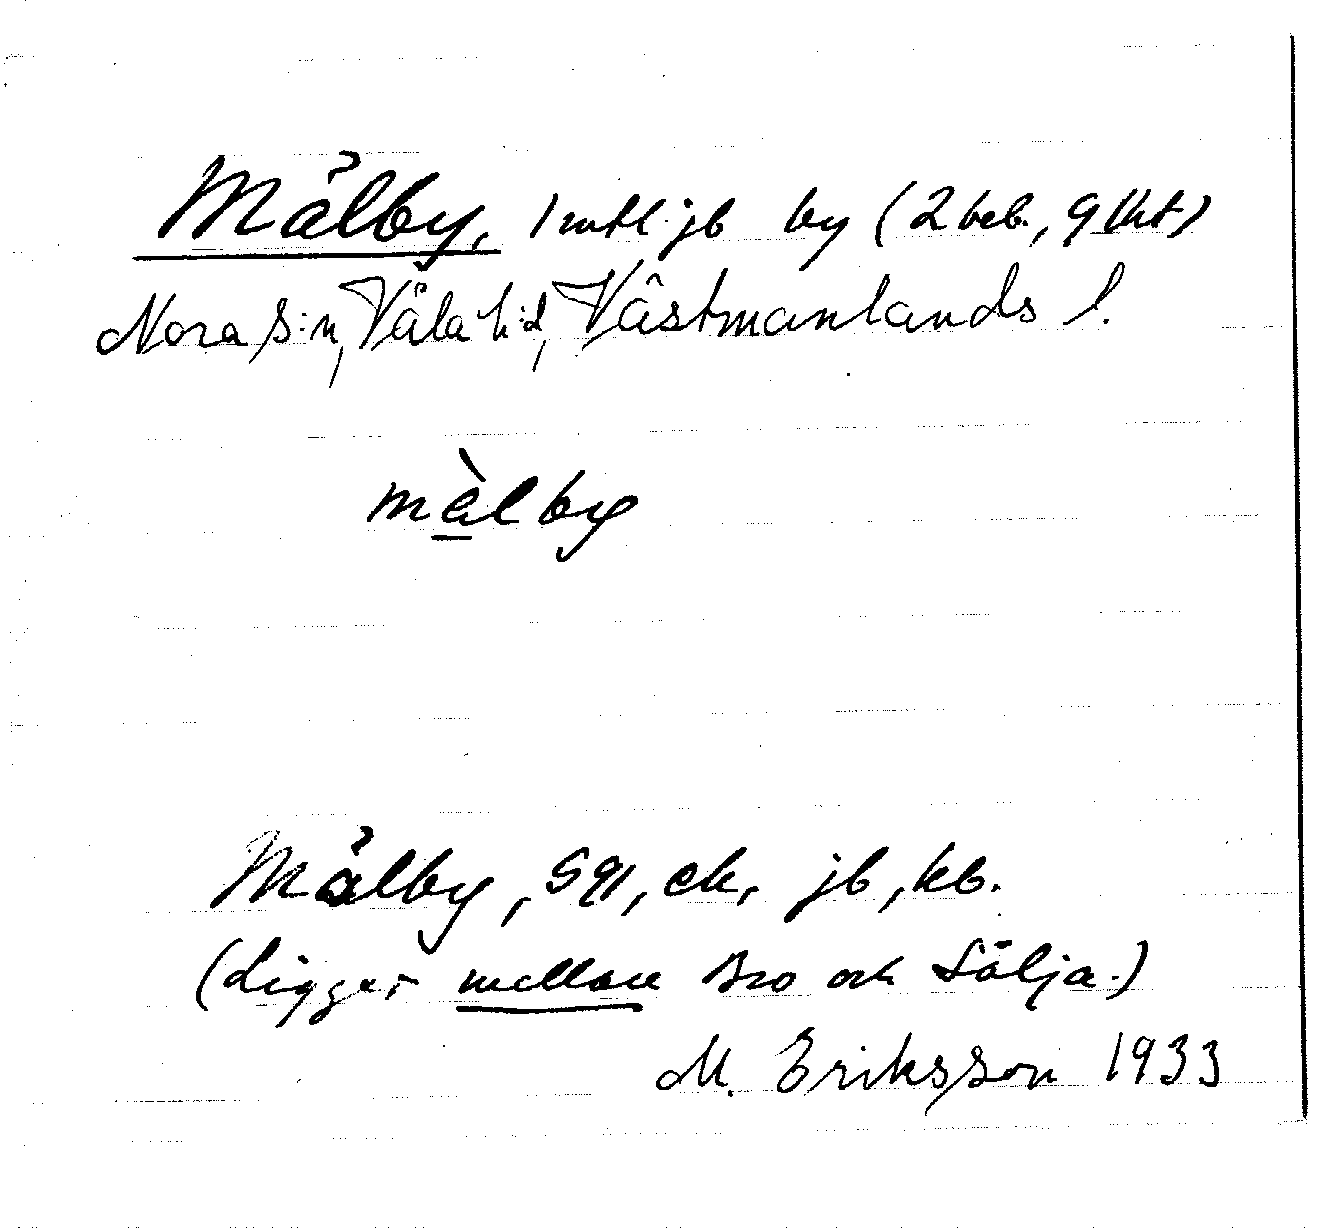 Målby, 1 mtl jb by (2 beb., 9 lht)
Nora s:n, Våla h:d, Västmanlands l.
màlby
Målby, 591, ek, jb, kb.
(Ligger mellan Bro och Sälja.)
M. Eriksson 1933